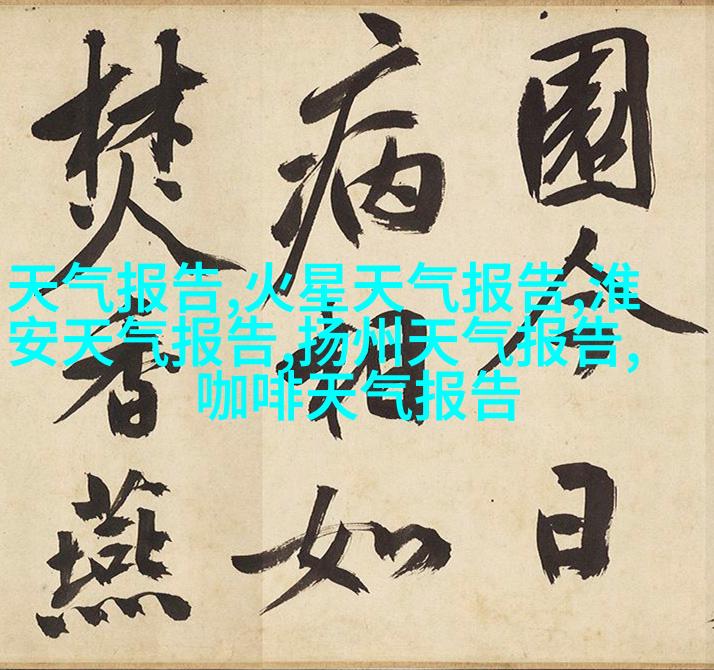 天气报告,火星天气报告,淮
安天气报告,扬州天气报告,
咖啡天气报告
園今日
病相如
焚香燕